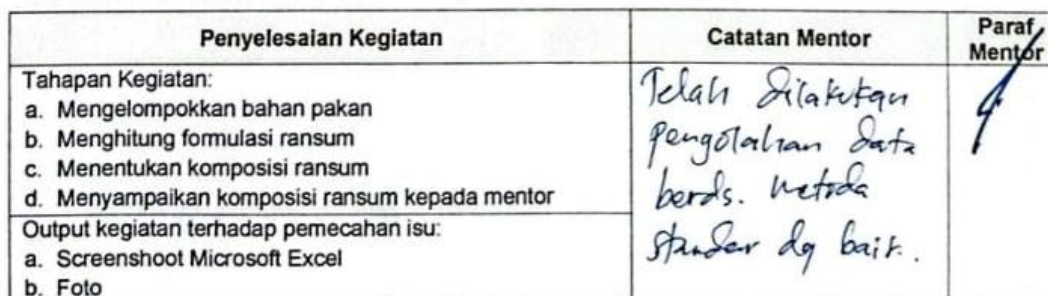 Penyelesaian Kegiatan
Catatan Mentor
Paraf
Mentor
Tahapan Kegiatan:
a. Mengelompokkan bahan pakan
b. Menghitung formulasi ransum
c. Menentukan komposisi ransum
d. Menyampaikan komposisi ransum kepada mentor
Telah dilakukan
pengolahan data
berds. metoda
standar dg baik.
Output kegiatan terhadap pemecahan isu:
a. Screenshoot Microsoft Excel
b. Foto